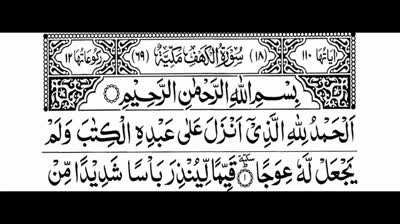 اٰيَاتُهَا ١١٠ (١٨) سُوْرَةُ الْكَهْفِ مَكِّيَّةٌ (٦٩) رُكُوْعَاتُهَا ١٢
بِسْمِ اللهِ الرَّحْمٰنِ الرَّحِيْمِ
اَلْحَمْدُ لِلّٰهِ الَّذِيْٓ اَنْزَلَ عَلٰى عَبْدِهِ الْكِتٰبَ وَلَمْ
يَجْعَلْ لَّهٗ عِوَجًا ١ سكتة قَيِّمًا لِّيُنْذِرَ بَاْسًا شَدِيْدًا مِّنْ